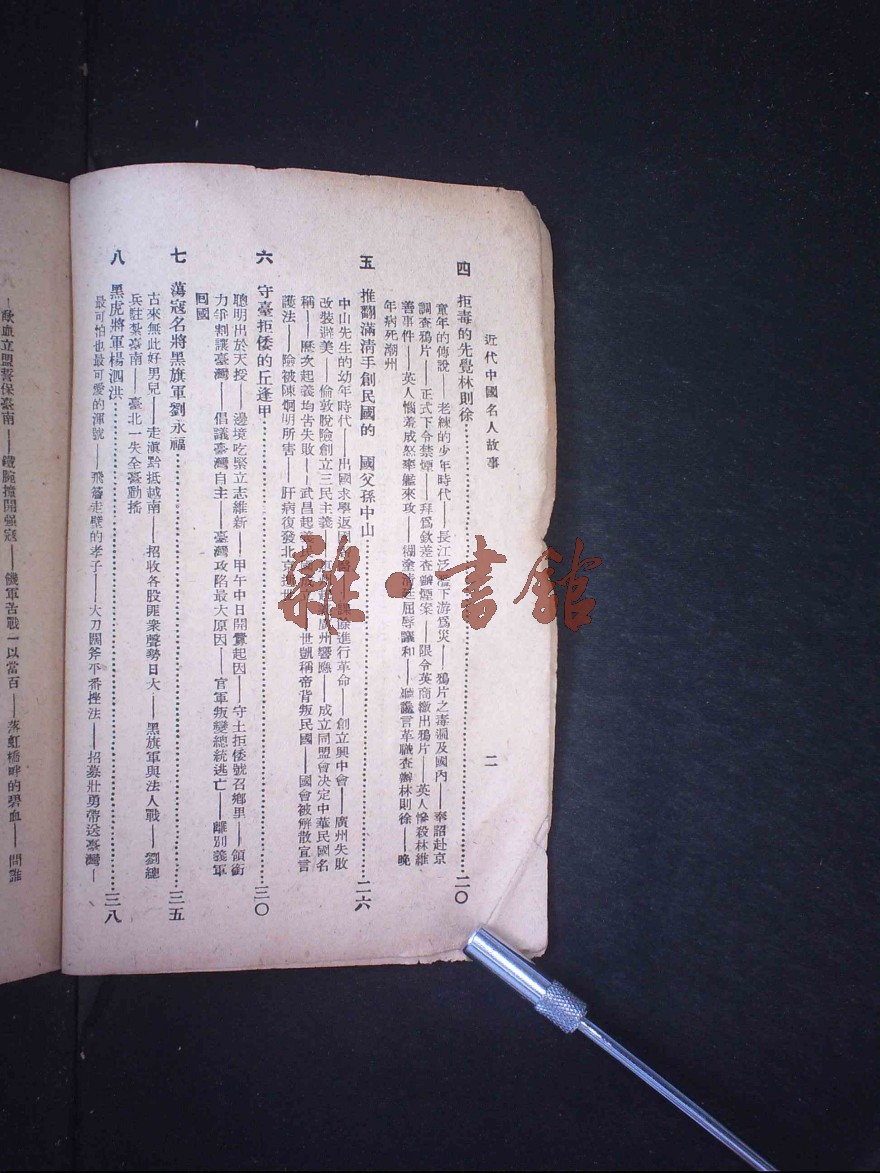 近代中國名人故事
二
四 拒毒的先覺林則徐……二〇
童年的傳說——老練的少年時代——長江泛下游爲災——鴉片之毒漏及國內——奉詔赴京
調查鴉片——正式下令禁煙——拜爲欽差查辦煙案——限令英商繳出鴉片——英人慘殺林維
善事件——英人惱羞成怒率艦來攻——糊塗屈辱議和——聽讒言革職查辦林則徐——晚
年病死潮州
五 推翻滿清手創民國的 國父孫中山……二六
中山先生的幼年時代——出國求學返國——課餘進行革命——創立興中會——廣州失敗
改裝避美——倫敦脫險創立三民主義——廣州響應——成立同盟會决定中華民國名
稱——歷次起義均告失敗——武昌起義世凱稱帝背叛民國——國會被解散宣言
護法——險被陳炯明所害——肝病復發北京逝世
六 守臺拒倭的丘逢甲……三〇
聰明出於天授——邊境吃緊立志維新——甲午中日開釁起因——守土拒倭號召鄉里——領銜
力爭割讓臺灣——倡議臺灣自主——臺灣攻陷最大原因——官軍叛變總統逃亡——離別義軍
回國
七 蕩寇名將黑旗軍劉永福……三五
古來無此好男兒——走滇黔抵越南——招收各股匪衆聲勢日大——黑旗軍與法人戰——劉總
兵駐紮臺南——臺北一失全臺動搖
八 黑虎將軍楊泗洪……三八
最可怕也最可愛的渾號——飛簷走壁的孝子——大刀闊斧不番挫法——招募壯勇帶送臺灣—
—歃血立盟誓保臺南——鐵腕擋開强寇——饑軍苦戰一以當百——落虹橋畔的碧血——問誰
雜·書館